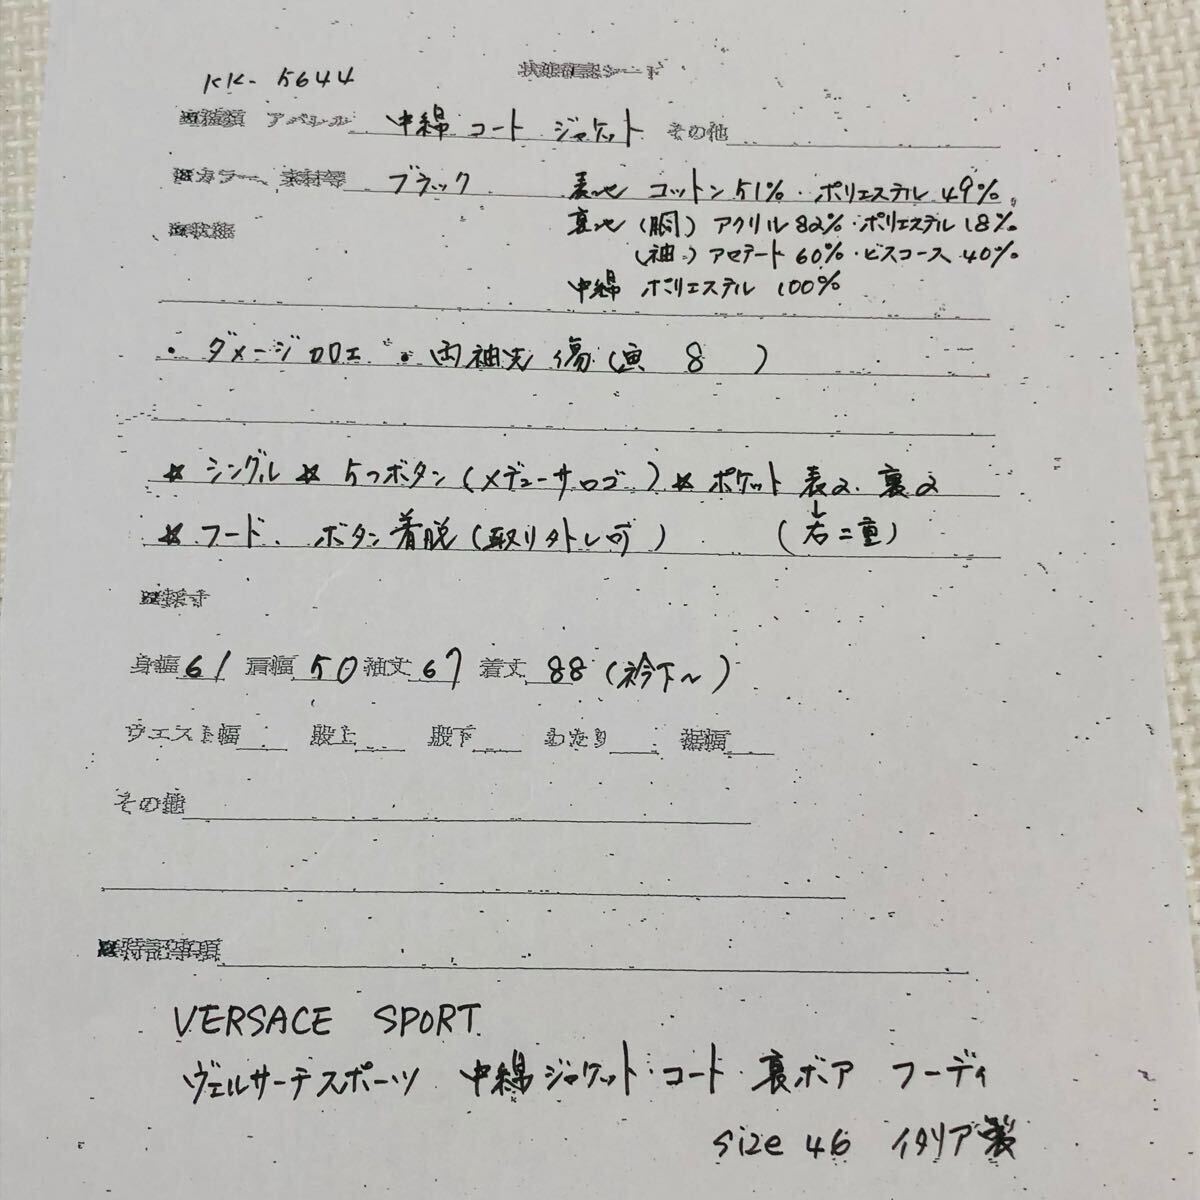 KK-5644
状態確認シート
※種類 アパレル 中綿 コート ジャケット その他
※カラー、素材等 ブラック 表地 コットン51%・ポリエステル49%。
※状態 裏地(胴)アクリル82%・ポリエステル18%。
(袖)アセテート60%・ビスコース40%
中綿 ポリエステル100%
・ダメージ加工 ・両袖先 傷(画 8 )
☆シングル ☆5つボタン(メデューサロゴ) ☆ポケット 表2、裏2
☆フード、ボタン着脱(取り外し可) (右二重)
※採寸
身幅61 肩幅50 袖丈67 着丈88(衿下~)
ウエスト幅 股上 股下 わたり 裾幅
その他
※特記事項
VERSACE SPORT
ヴェルサーチスポーツ 中綿ジャケット・コート・裏ボア フーディ
size 46 イタリア製